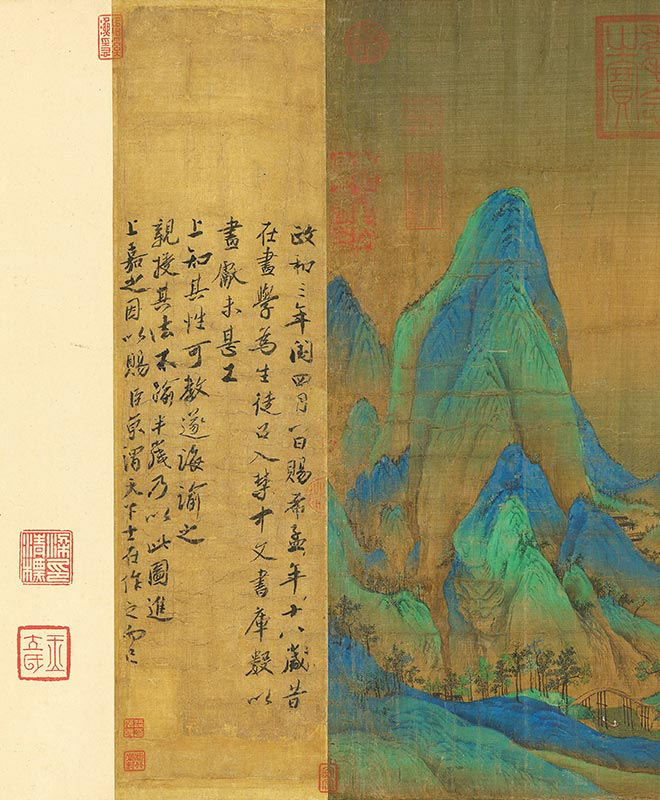 政和三年閏四月一日賜希孟年十八歲昔
在畫學為生徒召入禁中文書庫數以
畫獻未甚工
上知其性可教遂誨諭之
親授其法不踰半歲乃以此圖進
上嘉之因以賜臣京謂天下士在作之而已
梁印清標